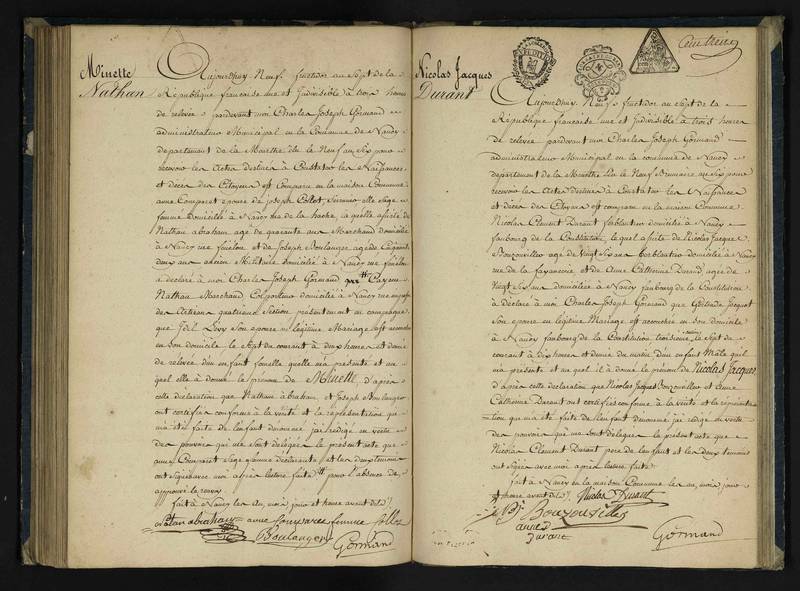 Minette
Nathan
Aujourd'huy Neuf fructidor an Sept de la
République francaise une et Indivisible à trois heures
de relevée pardevant moi Charles Joseph Gormand
administrateur Municipal en la Commune de Nancy
departement de la Meurthe élu le Neuf an Six pour
recevoir les Actes destinés à Constater les Naissances
et décès des Citoyens est Comparu en la maison Commune
anne Comparet epouse de joseph Collot Sage
femme domiciliée à Nancy rue de la hache, laquelle assistée de
Nathan abraham agé de quarante ans Marchand domicilié
à Nancy rue fenelon et de Joseph Boulanger agé de Cinquante
deux ans ancien Militaire domicilié à Nancy rue fenelon
a déclaré à moi Charles Joseph Gormand que Cayem
Nathan Marchand Colporteur domicilié à Nancy rue
des Artisans quatrième Section présentement en campagne
que Lévy Son epouse en légitime Mariage est accouchée
en Son domicile le Sept du courant à deux heures et demie
de relevée d'un enfant femelle quelle m'a présenté et au
quel elle a donné le prenom de Minette d'après
cette déclaration que Nathan abraham et Joseph Boulanger
ont certifiée conforme à la vérité et la représentation qui
m'a été faite de l'enfant denommé j'ai rédigé en vertu
des pouvoirs qui me sont délégués le présent acte que
anne Comparet Sage femme déclarante et les deux temoins
ont signé avec moi après lecture faite pour l'absence de
approuvé le renvoi
fait à Nancy les an, mois jour et heure avant dits
Natan abraham anne Comparet femme Collot
Boulanger Gormand
Nicolas Jacques
Durant
Aujourd'huy Neuf fructidor an Sept de la
République francaise une et Indivisible à trois heures
de relevée pardevant moi Charles Joseph Gormand
administrateur Municipal en la commune de Nancy
département de la Meurthe élu le Neuf Brumaire an Six pour
recevoir les Actes destinés à Constater les Naissances
et décès des Citoyens est comparu en la maison Commune
Nicolas Clement Durant ferblantier domicilié à Nancy
faubourg de la Constitution, lequel assisté de Nicolas Jacques
Bouzonviller agé de Vingt Six ans ferblantier domicilié à Nancy
rue de la fayancerie et de Anne Catherine Durand agée de
Vingt Six ans domiciliée à Nancy faubourg de la Constitution
a déclaré à moi Charles Joseph Gormand que Jacquot
Son epouse en légitime Mariage est accouchée en Son domicile
à Nancy faubourg de la Constitution troisieme Section le Sept du
courant à dix heures et demie du matin d'un enfant Mâle quil
m'a présenté et au quel il a donné le prénom de Nicolas Jacques
d'après cette déclaration que Nicolas Jacques Bouzonviller et Anne
Catherine Durant ont certifiée conforme à la vérité et la représentation
qui m'a été faite de l'enfant denommé j'ai rédigé en vertu
des pouvoirs qui me sont délégués le présent acte que
Nicolas Clement Durant pere de l'enfant et les deux temoins
ont signé avec moi après lecture faite
fait à Nancy en la maison Commune les an, mois jour
et heure avant dits Nicolas Durant
Bouzonviller
anne
Durant Gormand